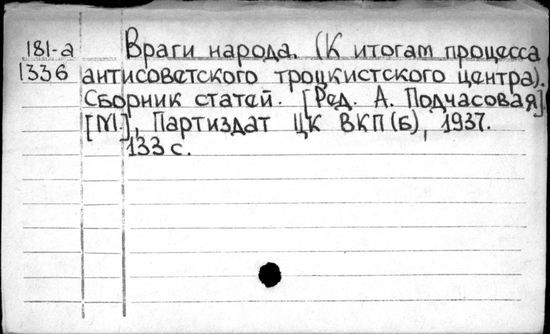 181-а Враги народа. (К итогам процесса
1336 антисоветского троцкистского центра).
Сборник статей. [Ред. А. Подчасовая]
[М.], Партиздат ЦК ВКП(б), 1937.
133 с.